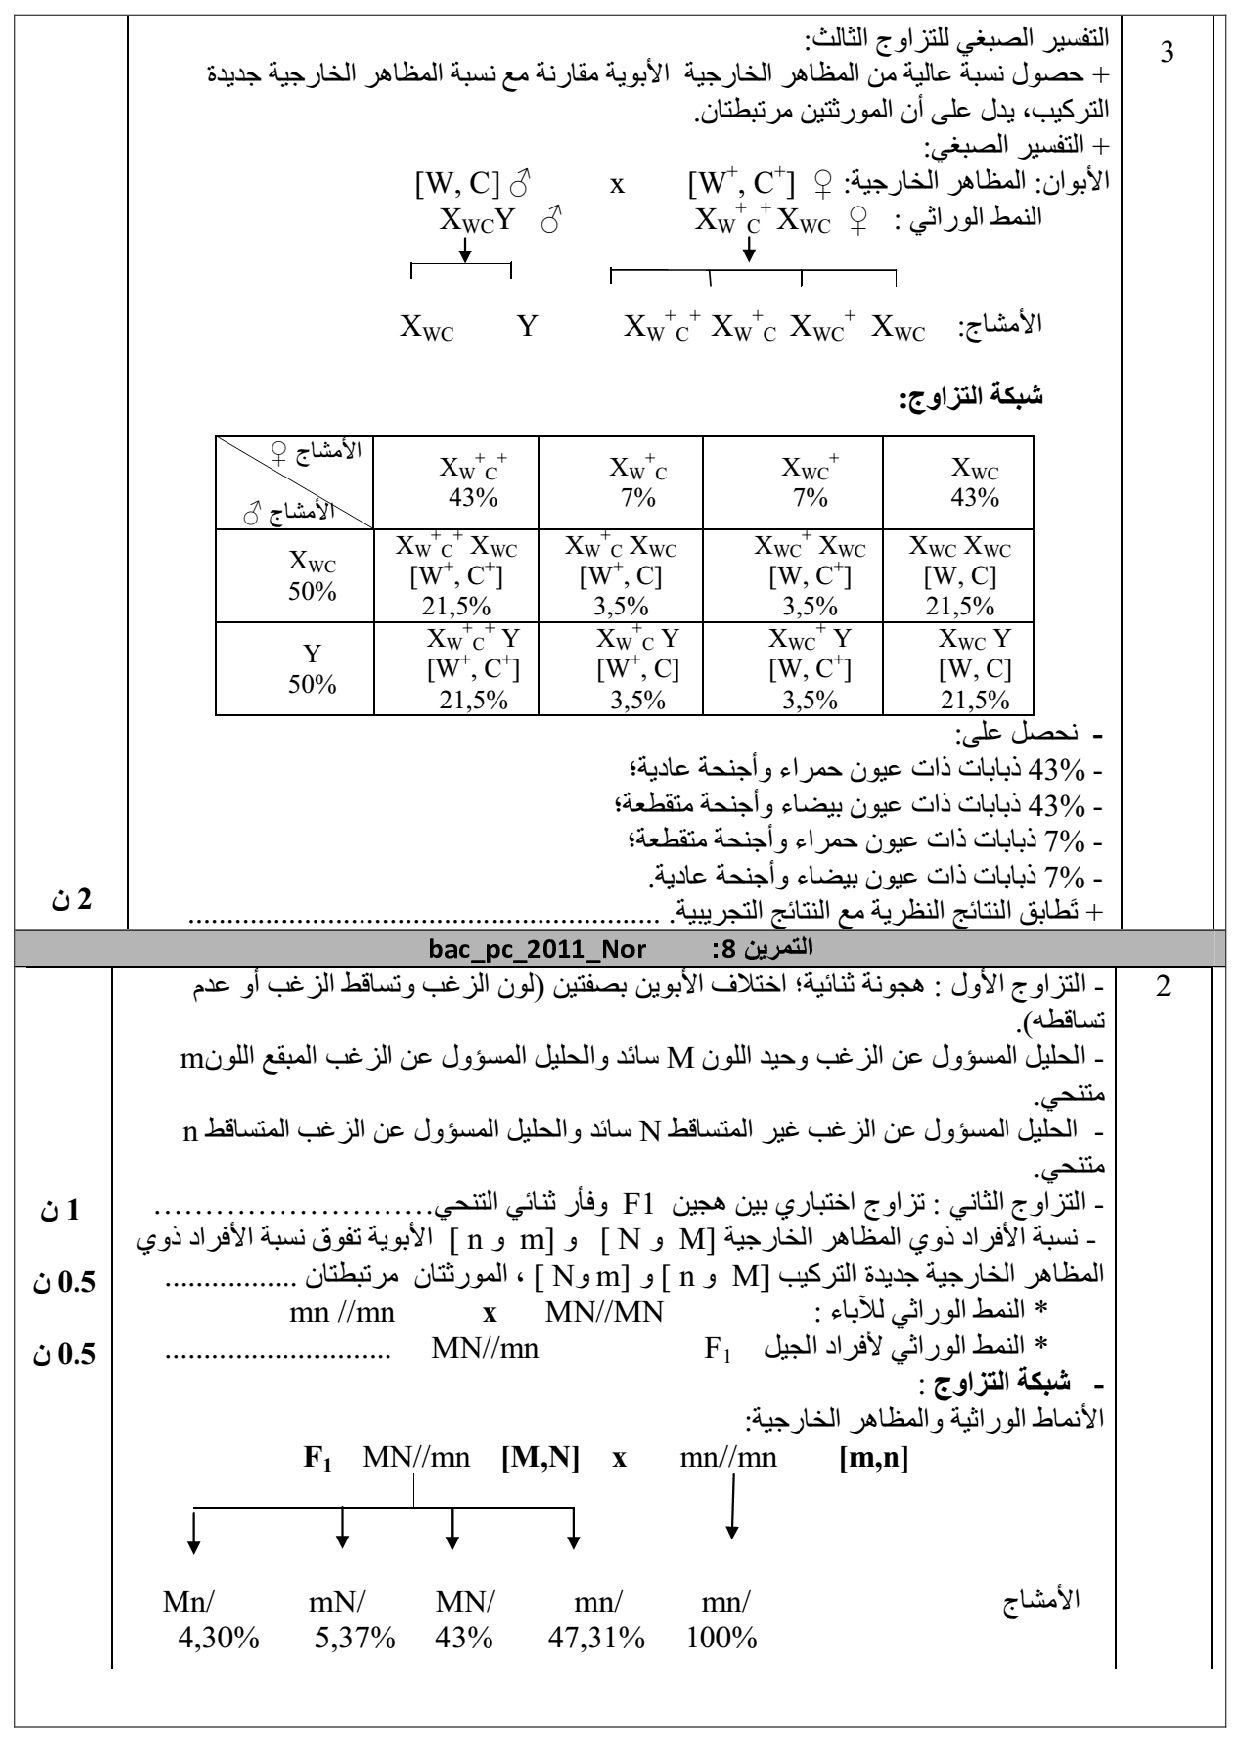 3
التفسير الصبغي للتزاوج الثالث:
+ حصول نسبة عالية من المظاهر الخارجية الأبوية مقارنة مع نسبة المظاهر الخارجية جديدة
التركيب، يدل على أن المورثتين مرتبطتان.
+ التفسير الصبغي:
الأبوان: المظاهر الخارجية: ♀ [W⁺, C⁺] x ♂ [W, C]
النمط الوراثي : ♀ X_W⁺_C⁺ X_WC ♂ X_WC Y
الأمشاج: X_W⁺_C⁺ X_W⁺_C X_WC⁺ X_WC Y X_WC
شبكة التزاوج:
الأمشاج ♀
الأمشاج ♂
X_W⁺_C⁺ X_W⁺_C X_WC⁺ X_WC
43% 7% 7% 43%
X_WC X_W⁺_C⁺ X_WC X_W⁺_C X_WC X_WC⁺ X_WC X_WC X_WC
50% [W⁺, C⁺] [W⁺, C] [W, C⁺] [W, C]
21,5% 3,5% 3,5% 21,5%
Y X_W⁺_C⁺ Y X_W⁺_C Y X_WC⁺ Y X_WC Y
50% [W⁺, C⁺] [W⁺, C] [W, C⁺] [W, C]
21,5% 3,5% 3,5% 21,5%
- نحصل على:
- 43% ذبابات ذات عيون حمراء وأجنحة عادية؛
- 43% ذبابات ذات عيون بيضاء وأجنحة متقطعة؛
- 7% ذبابات ذات عيون حمراء وأجنحة متقطعة؛
- 7% ذبابات ذات عيون بيضاء وأجنحة عادية.
+ تَطابق النتائج النظرية مع النتائج التجريبية. ............................................................. 2 ن
التمرين 8: bac_pc_2011_Nor
2
- التزاوج الأول : هجونة ثنائية؛ اختلاف الأبوين بصفتين (لون الزغب وتساقط الزغب أو عدم
تساقطه).
- الحليل المسؤول عن الزغب وحيد اللون M سائد والحليل المسؤول عن الزغب المبقع اللون m
متنحي.
- الحليل المسؤول عن الزغب غير المتساقط N سائد والحليل المسؤول عن الزغب المتساقط n
متنحي.
- التزاوج الثاني : تزاوج اختباري بين هجين F1 وفأر ثنائي التنحي............................ 1 ن
- نسبة الأفراد ذوي المظاهر الخارجية [M و N ] و [m و n ] الأبوية تفوق نسبة الأفراد ذوي
المظاهر الخارجية جديدة التركيب [M و n ] و [m و N ] ، المورثتان مرتبطتان ................. 0.5 ن
* النمط الوراثي للآباء : MN//MN x mn //mn
* النمط الوراثي لأفراد الجيل F₁ MN//mn ............................. 0.5 ن
- شبكة التزاوج :
الأنماط الوراثية والمظاهر الخارجية:
F₁ MN//mn [M,N] x mn//mn [m,n]
الأمشاج
Mn/ mN/ MN/ mn/ mn/
4,30% 5,37% 43% 47,31% 100%